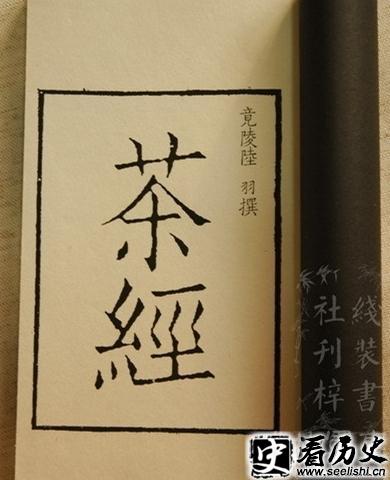 綫装書
社刊梓
竟陵陸 羽撰
茶經
史 看历史
www.seelishi.cn